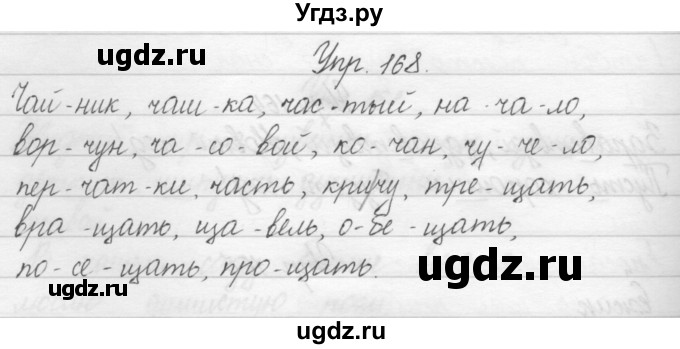 Угдз.ру
ugdz.ru ugdz.ru
Упр. 168.
Чай-ник, чаш-ка, час-тый, на-ча-ло,
ugdz.ru
вор-чун, ча-со-вой, ко-чан, чу-че-ло,
пер-чат-ки, часть, кричу, тре-щать,
ugdz.ru
вра-щать, ща-вель, о-бе-щать,
по-се-щать, про-щать.
ugdz.ru ugdz.ru
ugdz.ru